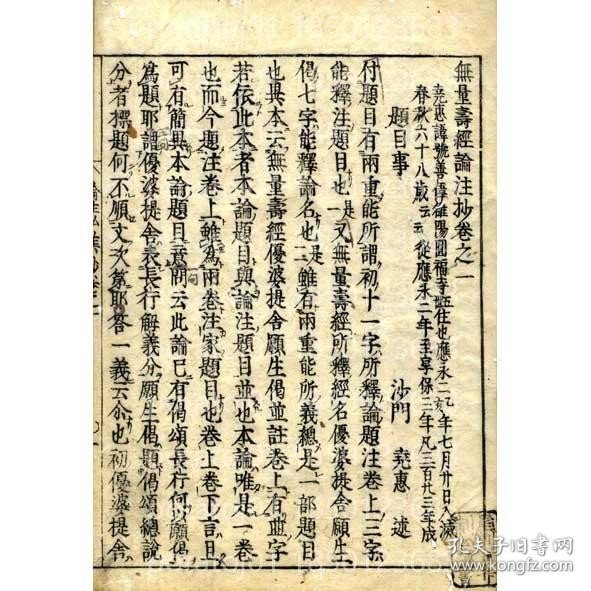 無量壽經論注抄卷之一
堯惠諱號善偉雒陽圓福寺住也應永二乙亥年七月廿日入滅
春秋六十八歲云云從應永二年至享保三年凡三百廿三年成
題目事　沙門　堯惠　述
付題目有兩重能所謂初十一字所釋論題注卷上三字
能釋注題目也是一又無量壽經所釋經名優婆提舍願生
偈七字能釋論名也是二雖有兩重能所義總是一部題目
也異本云無量壽經優婆提舍願生偈並註卷上有並字
若依此本者本論題目與論注題目並也本論唯是一卷
也而今題注卷上雖為兩卷注家題目也卷上卷下言目
可有簡異本論題目意問云此論已有偈頌長行何以願偈
為題耶謂優婆提舍表長行解義分願生偈題偈頌總說
分者標題何不順文次第耶答一義云尒也初優婆提舍
孔夫子旧书网
www.kongfz.com